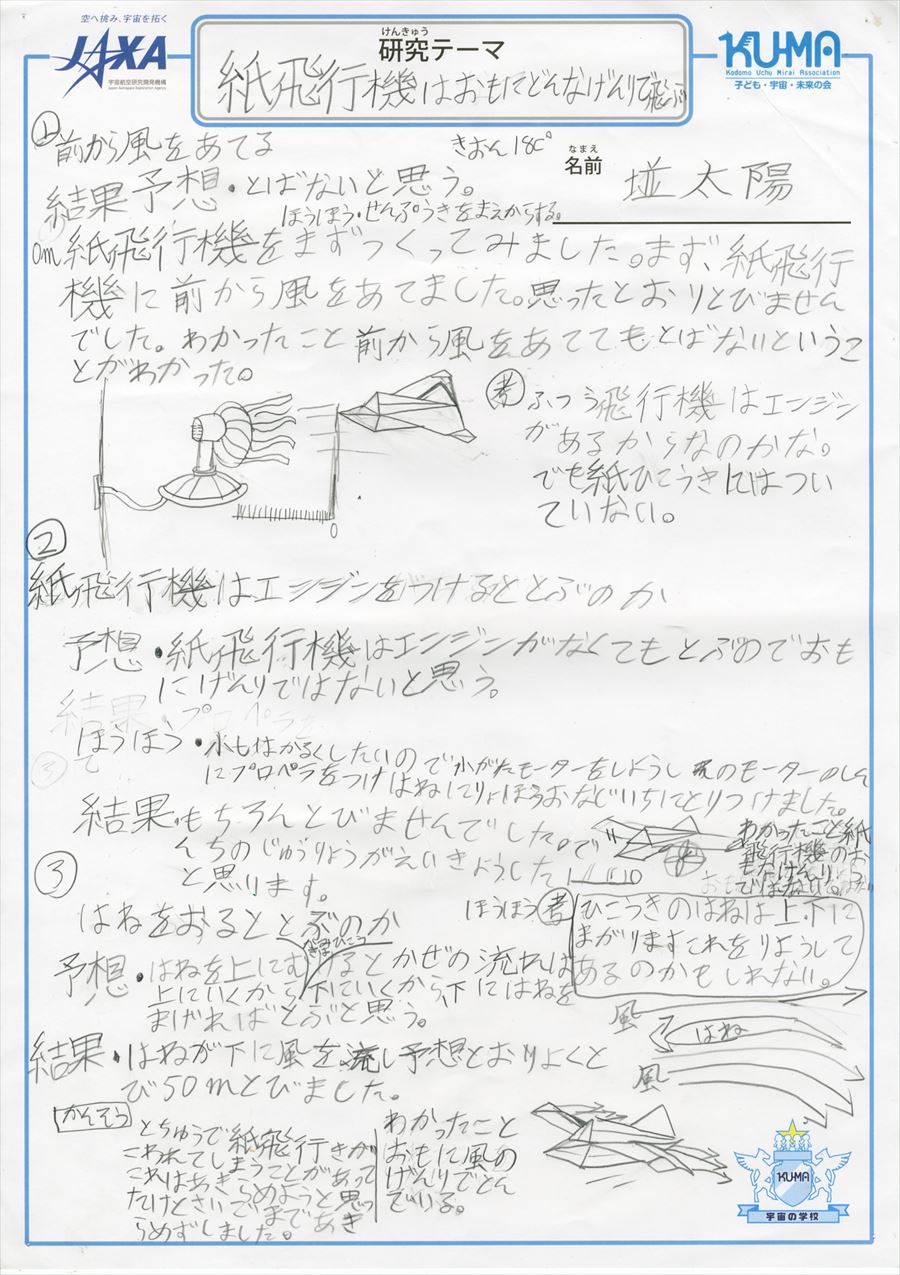 空へ挑み、宇宙を拓く
JAXA
宇宙航空研究開発機構
Japan Aerospace Exploration Agency
けんきゅう
研究テーマ
紙飛行機はおもにどんなげんりで飛ぶ
KU-MA
Kodomo Uchu Mirai Association
子ども・宇宙・未来の会
① 前から風をあてる
きおん18C°
なまえ
名前
太陽
結果予想・とばないと思う。
ほうほう・せんぷうきをまえからする。
0m 紙飛行機をまずつくってみました。まず、紙飛行
機に前から風をあてました。思ったとおりとびません
でした。わかったこと前から風をあててもとばないというこ
とがわかった。
考 ふつう飛行機はエンジン
があるからなのかな。
でも紙ひこうきにはつい
ていない。
0
②
紙飛行機はエンジンをつけるととぶのか
予想・紙飛行機はエンジンがなくてもとぶのでおも
にげんりではないと思う。
結果・プロペラを
ほうほう・水もはかるくしたいので小がたモーターをしようし
にプロペラをつけはねにりょほうおなじいちにとりつけました。
結果・もちろんとびませんでした。で
んちのじゅうりょうがえいきょうした
と思ります。
わかったこと紙
飛行機のお
もなげんり
ではない。
③
はねをおるととぶのか
ほうほう 考 ひこうきのはねは上、下に
まがりますこれをりようして
あるのかもしれない。
かみひこうき
予想・はねを上にむけるとかぜの流れは
上にいくから下にいくから、下にはねを
まげればとぶと思う。
風
はね
風
結果・はねが下に風を流し予想とおりよくと
び50mとびました。
かんそう
とちゅうで紙飛行きが
これれてしまうことがあって
これはあきらめようと思っ
たけどさいごまであき
らめずしました。
わかったこと
おもに風の
げんりでとん
でいる。
KU-MA
宇宙の学校